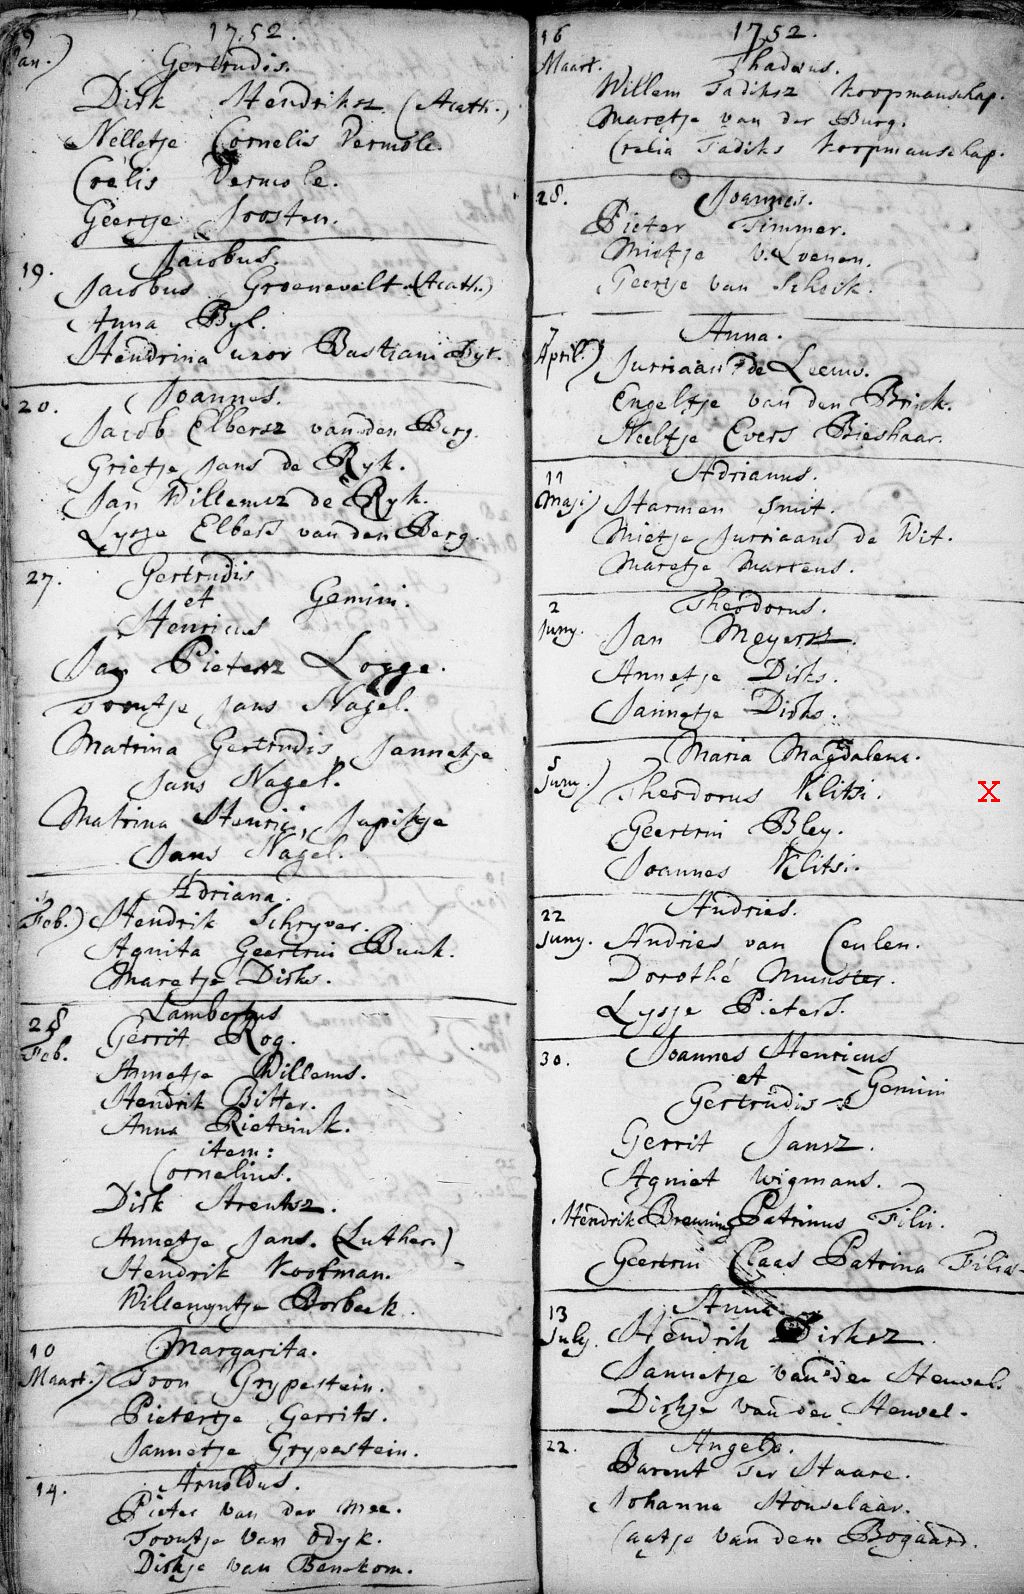 9 1752.
Jan.) Gertrudis.
Dirk Hendriksz (Acath.)
Nelletje Cornelis Vermole.
Crelis Vermole.
Geertje Joosten.
19. Jacobus.
Jacobus Groenevelt (Acath.)
Anna Byl.
Hendrina uxor Bastiani Byl.
20. Joannes.
Jacob Elbersz van den Berg.
Grietje Jans de Ryk.
Jan Willemsz de Ryk.
Lysje Elbers van den Berg.
27. Gertrudis
et Gemini.
Henricus
Jan Pietersz Logge.
Toontje Jans Nagel.
Matrina Gertrudis, Jannetje
Jans Nagel.
Matrina Henrici, Japikje
Jans Nagel.
1 Adriana.
Feb.) Hendrik Schryver.
Agnita Geertrui Buuk.
Maretje Dirks.
28 Lambertus
Feb. Gerrit Rog.
Annetje Willems.
Hendrik Bitter.
Anna Rietvink.
item:
Cornelius.
Dirk Streutsz.
Annetje Jans. (Luther.)
Hendrik Kooiman.
Willemyntje Borbeek.
10 Margarita.
Maart.) Toon Grypestein.
Pietertje Gerrits.
Jannetje Grypestein.
14. Arnoldus.
Pieter van der Mee.
Toontje van Odyk.
Dirkje van Benskom.
16 1752.
Maart. Thadeus.
Willem Tadiksz Koopmanschap.
Maretje van der Burg.
Crelia Tadiks Koopmanschap.
28. Joannes.
Pieter Timmer.
Mietje v. Loenen.
Geertje van Schoik.
7 Anna.
April.) Jurriaan de Leeuw.
Engeltje van den Brink.
Neeltje Evers Bieshaar.
11 Adrianus.
Maji) Harmen Smit.
Mietje Jurriaans de Wit.
Maretje Martens.
2 Theodorus.
Juny. Jan Meyersz.
Annetje Dirks.
Jannetje Dirks.
5 Maria Magdalena.
Juny.) Theodorus Klitsi. X
Geertrui Bley.
Joannes Klitsi.
22 Andries.
Juny. Andries van Ceulen.
Dorothé Munster.
Lysje Pieters.
30. Joannes Henricus
et Gemini
Gertrudis
Gerrit Jansz.
Agniet Wigmans.
Hendrik Breuning Patrinus Filii.
Geertrui Claas Patrina Filiae
13 Anna.
July. Hendrik Dirksz
Jannetje van den Heuvel.
Dirkje van den Heuvel.
22. Angela.
Barent ter Haare.
Johanna Houselaar.
Caatje van den Bogaard.